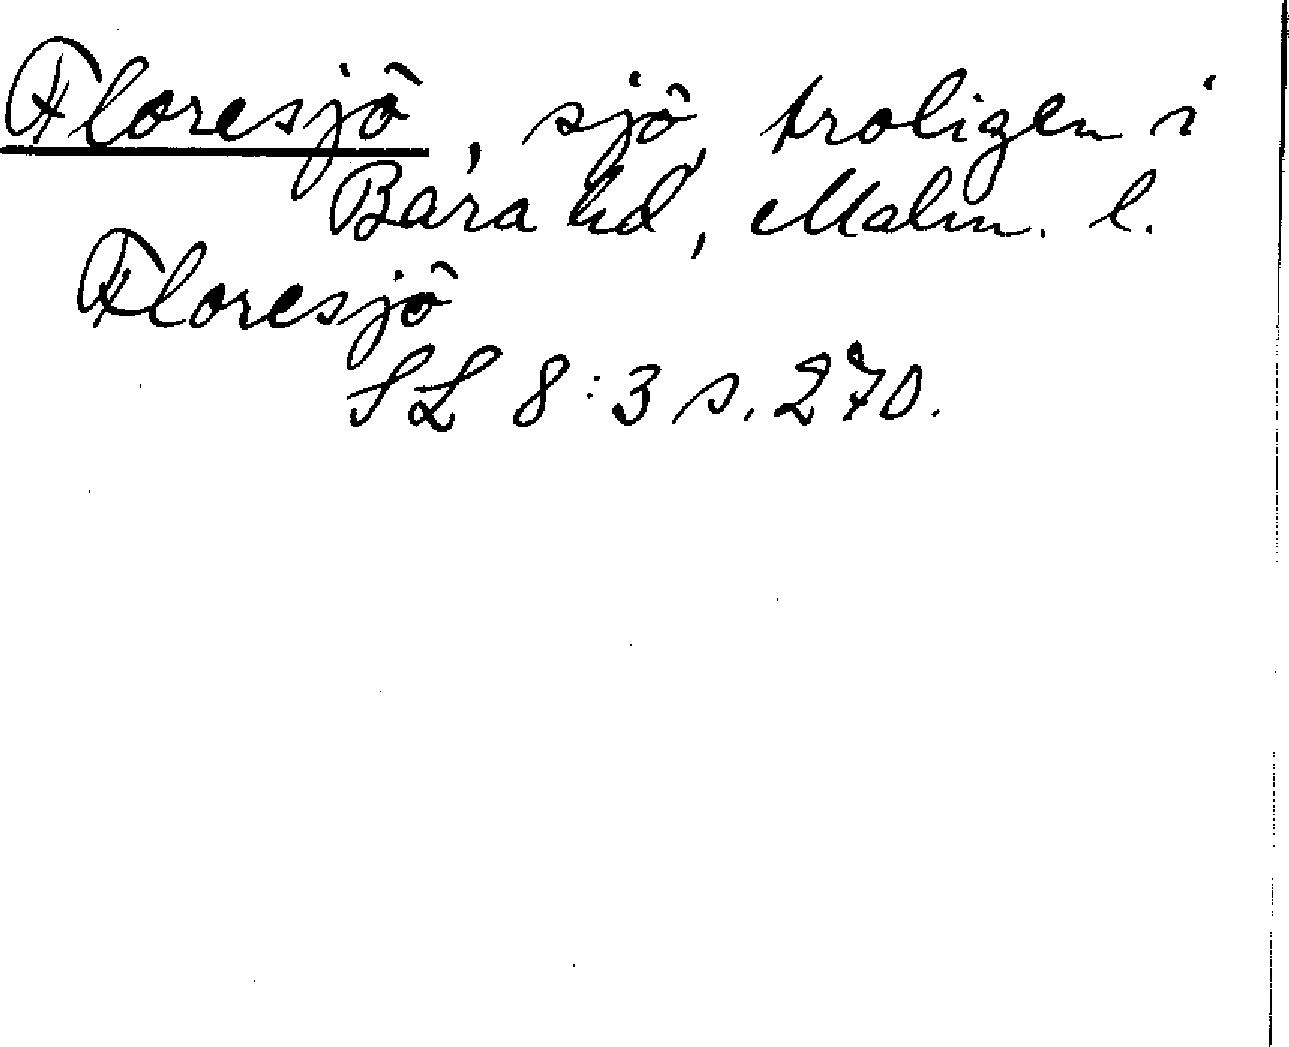 Floresjö, sjö, troligen i
Bara hd, Malm. l.
Floresjö
SL 8:3 s. 270.